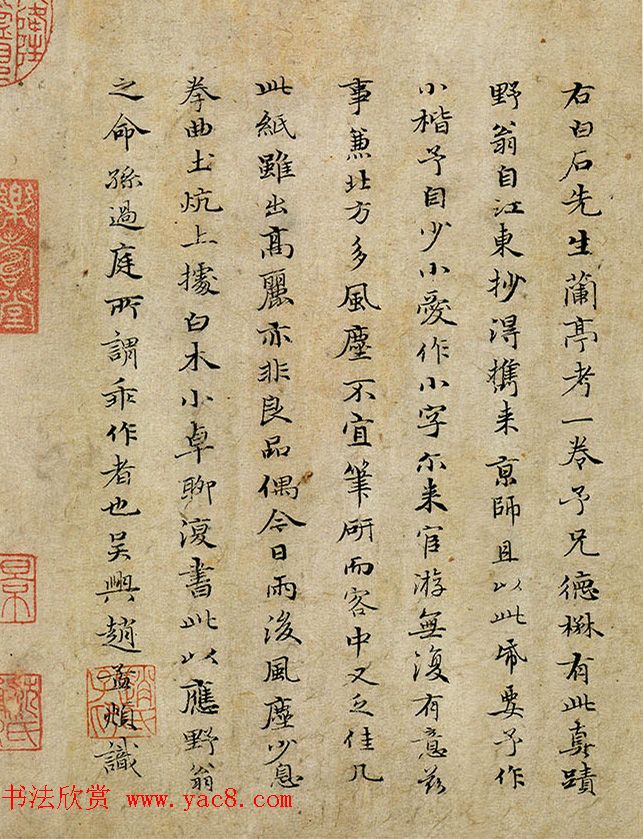 右白石先生蘭亭考一卷予兄德楙有此真蹟
野翁自江東抄得攜来京師且以此帋要予作
小楷予自少小愛作小字尔来官游無復有意兹
事兼北方多風塵不宜筆研而客中又乏佳几
此紙雖出高麗亦非良品偶今日雨後風塵少息
拳曲土炕上據白木小卓聊復書此以應野翁
之命孫過庭所謂乖作者也吴興趙孟頫識
趙氏子昂
书法欣赏 www.yac8.com